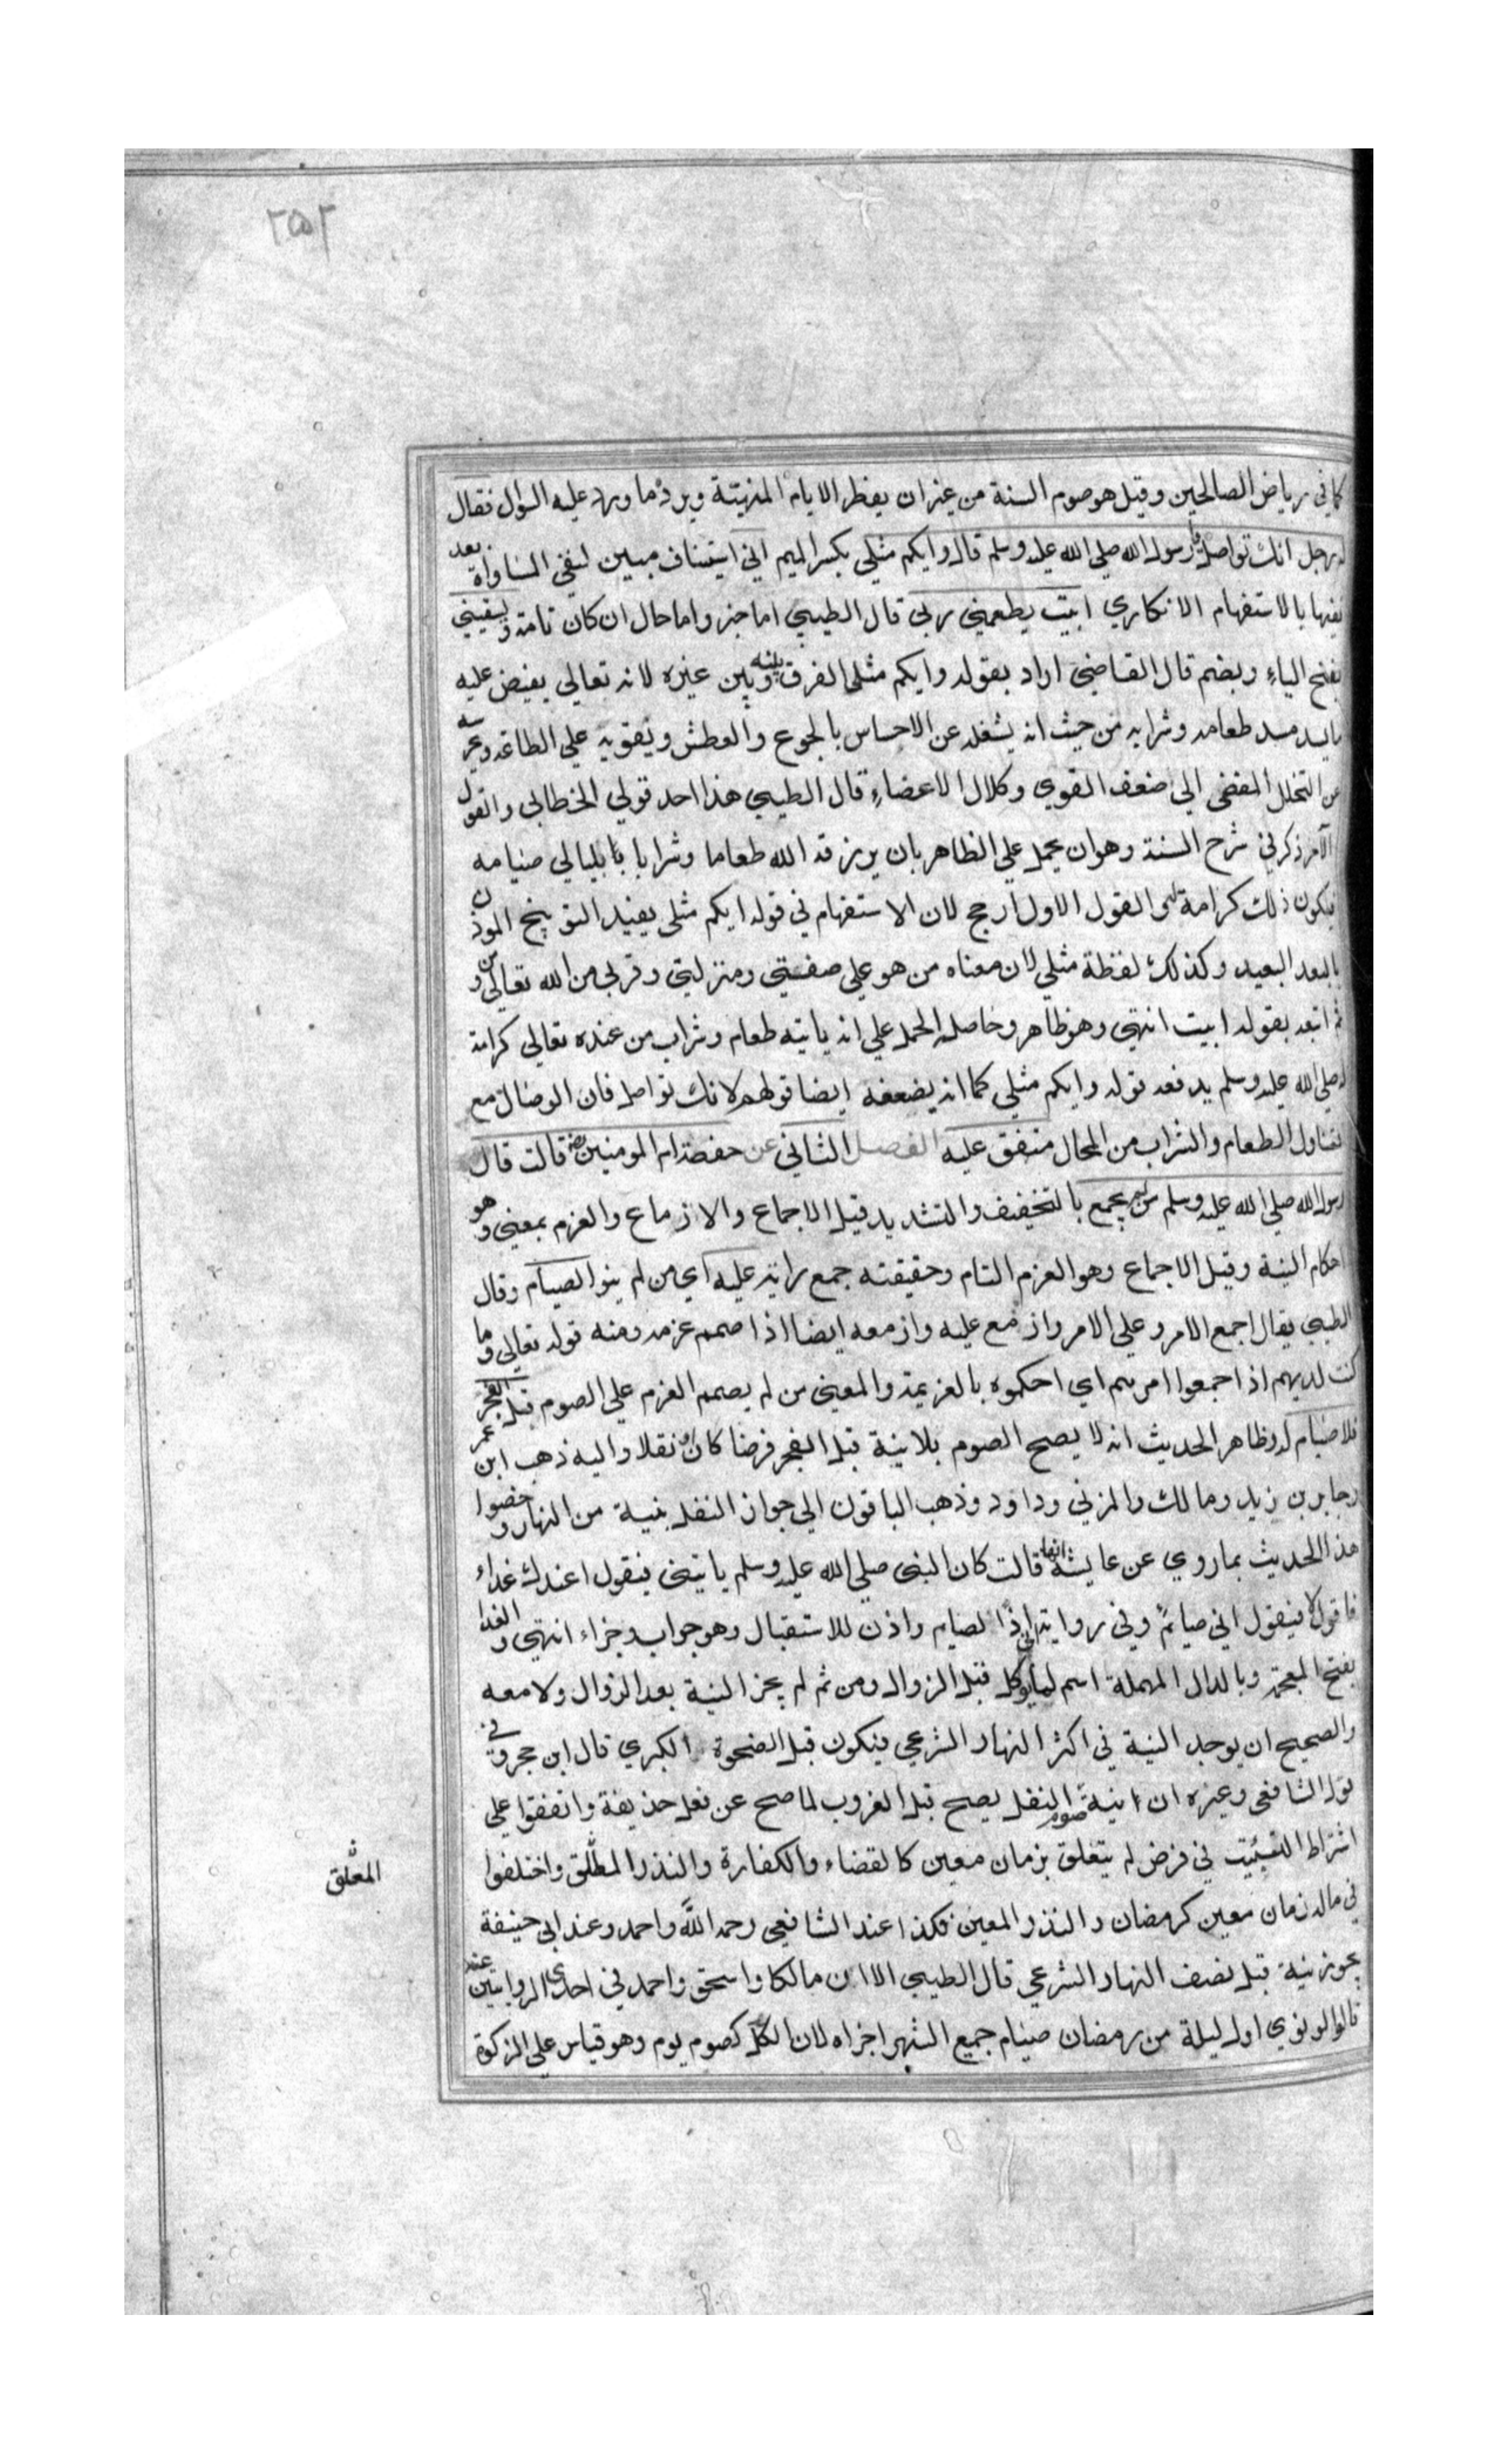 ٢٥٢
كما في رياض الصالحين وقيل هو صوم السنة من غير ان يفطر الايام المنهيتة ويرده ما ورد عليه السوال فقال
له رجل انك تواصل يا رسول الله صلي الله عليه وسلم قال وايكم مثلي بكسر الميم اني استيناف مبين لنفي المساواة بعد
نفيها بالاستفهام الانكاري ابيت يطعمني ربي قال الطيبي اما خبر واما حال ان كان تامة ويسقيني
بفتح الياءِ وبضم قال القاضي اراد بقوله وايكم مثلي الفرق بينه وبين غيره لانه تعالي يفيض عليه
ما يسد مسد طعامه وشرابه من حيث انه يشغله عن الاحساس بالجوع والعطش ويقويه علي الطاعه ويحرسه
عن التحلل المفضي الي ضعف القوي وكلال الاعضاءِ قال الطيبي هذا احد قولي الخطابي والقول
الآخر ذكر في شرح السنة وهو ان يحمل علي الظاهر بان يرزقه الله طعاما وشرابا بابليالي صيامه
فيكون ذلك كرامة له والقول الاول ارجح لان الاستفهام في قوله ايكم مثلي يفيد التوبيخ الموذن
بالبعد البعيد وكذلك لفظة مثلي لان معناه من هو علي صفتي ومنزلتي وقربي من الله تعالي ومن
ثم اتبعه بقوله ابيت انتهي وهو ظاهر وحاصله الحمل علي انه ياتيه طعام وشراب من عنده تعالي كرامة
له صلي الله عليه وسلم يدفعه قوله وايكم مثلي كما انه يضعفه ايضا قولهم لانك تواصل فان الوصال مع
تناول الطعام والشراب من المحال متفق عليه الفصل الثاني عن حفصة ام المومنين رضه قالت قال
رسول الله صلي الله عليه وسلم من لم يجمع بالتخفيف والتشديد قيل الاجماع والازماع والعزم بمعني وهو
احكام النية وقيل الاجماع وهو العزم التام وحقيقته جمع رايه عليه اي من لم ينو الصيام وقال
الطيبي يقال اجمع الامر وعلي الامر وازمع عليه وازمعه ايضا اذا صمم عزمه ومنه قوله تعالي وما
كنت لديهم اذ اجمعوا امرهم اي احكموه بالعزيمة والمعني من لم يصمم العزم علي الصوم قبل الفجر
فلا صيام له وظاهر الحديث انه لا يصح الصوم بلا نية قبل الفجر فرضا كان او نفلا واليه ذهب ابن عمر
وجابر بن زيد ومالك والمزني وداود وذهب الباقون الي جواز النفل بنية من النهار وخصوا
هذا الحديث بما روي عن عايشة انها قالت كان النبي صلي الله عليه وسلم ياتيني فيقول اعندك غداء
فاقول لا فيقول اني صيائمٌ وفي رواية اني اذًا لصايم واذن للاستقبال وهو جواب وجزاء انتهي والغدا
بفتح المعجمة وبالدال المهملة اسم لما يوكل قبل الزوال ومن ثم لم يجز النية بعد الزوال ولا معه
والصحيح ان يوجد النية في اكثر النهار الشرعي فيكون قبل الضحوة الكبري قال ابن حجر وفي
قول الشافعي وغيره ان نية صوم النفل يصح قبل الغروب لما صح عن فعل حذيفة واتفقوا علي
اشتراط التبييت في فرض لم يتعلق بزمان معين كالقضاء والكفارة والنذر المطلق واختلفوا
في ماله زمان معين كرمضان والنذر المعين فكذا عند الشافعي رحمه اللّه واحمد وعند ابي حنيفة
يجوز نية قبل نصف النهار الشرعي قال الطيبي الا ان مالكا واسحق واحمد في احدي الروايتين عنه
قالوا لو نوي اول ليلة من رمضان صيام جميع الشهر اجزاه لان الكل كصوم يوم وهو قياس علي الزكوة
المعلق